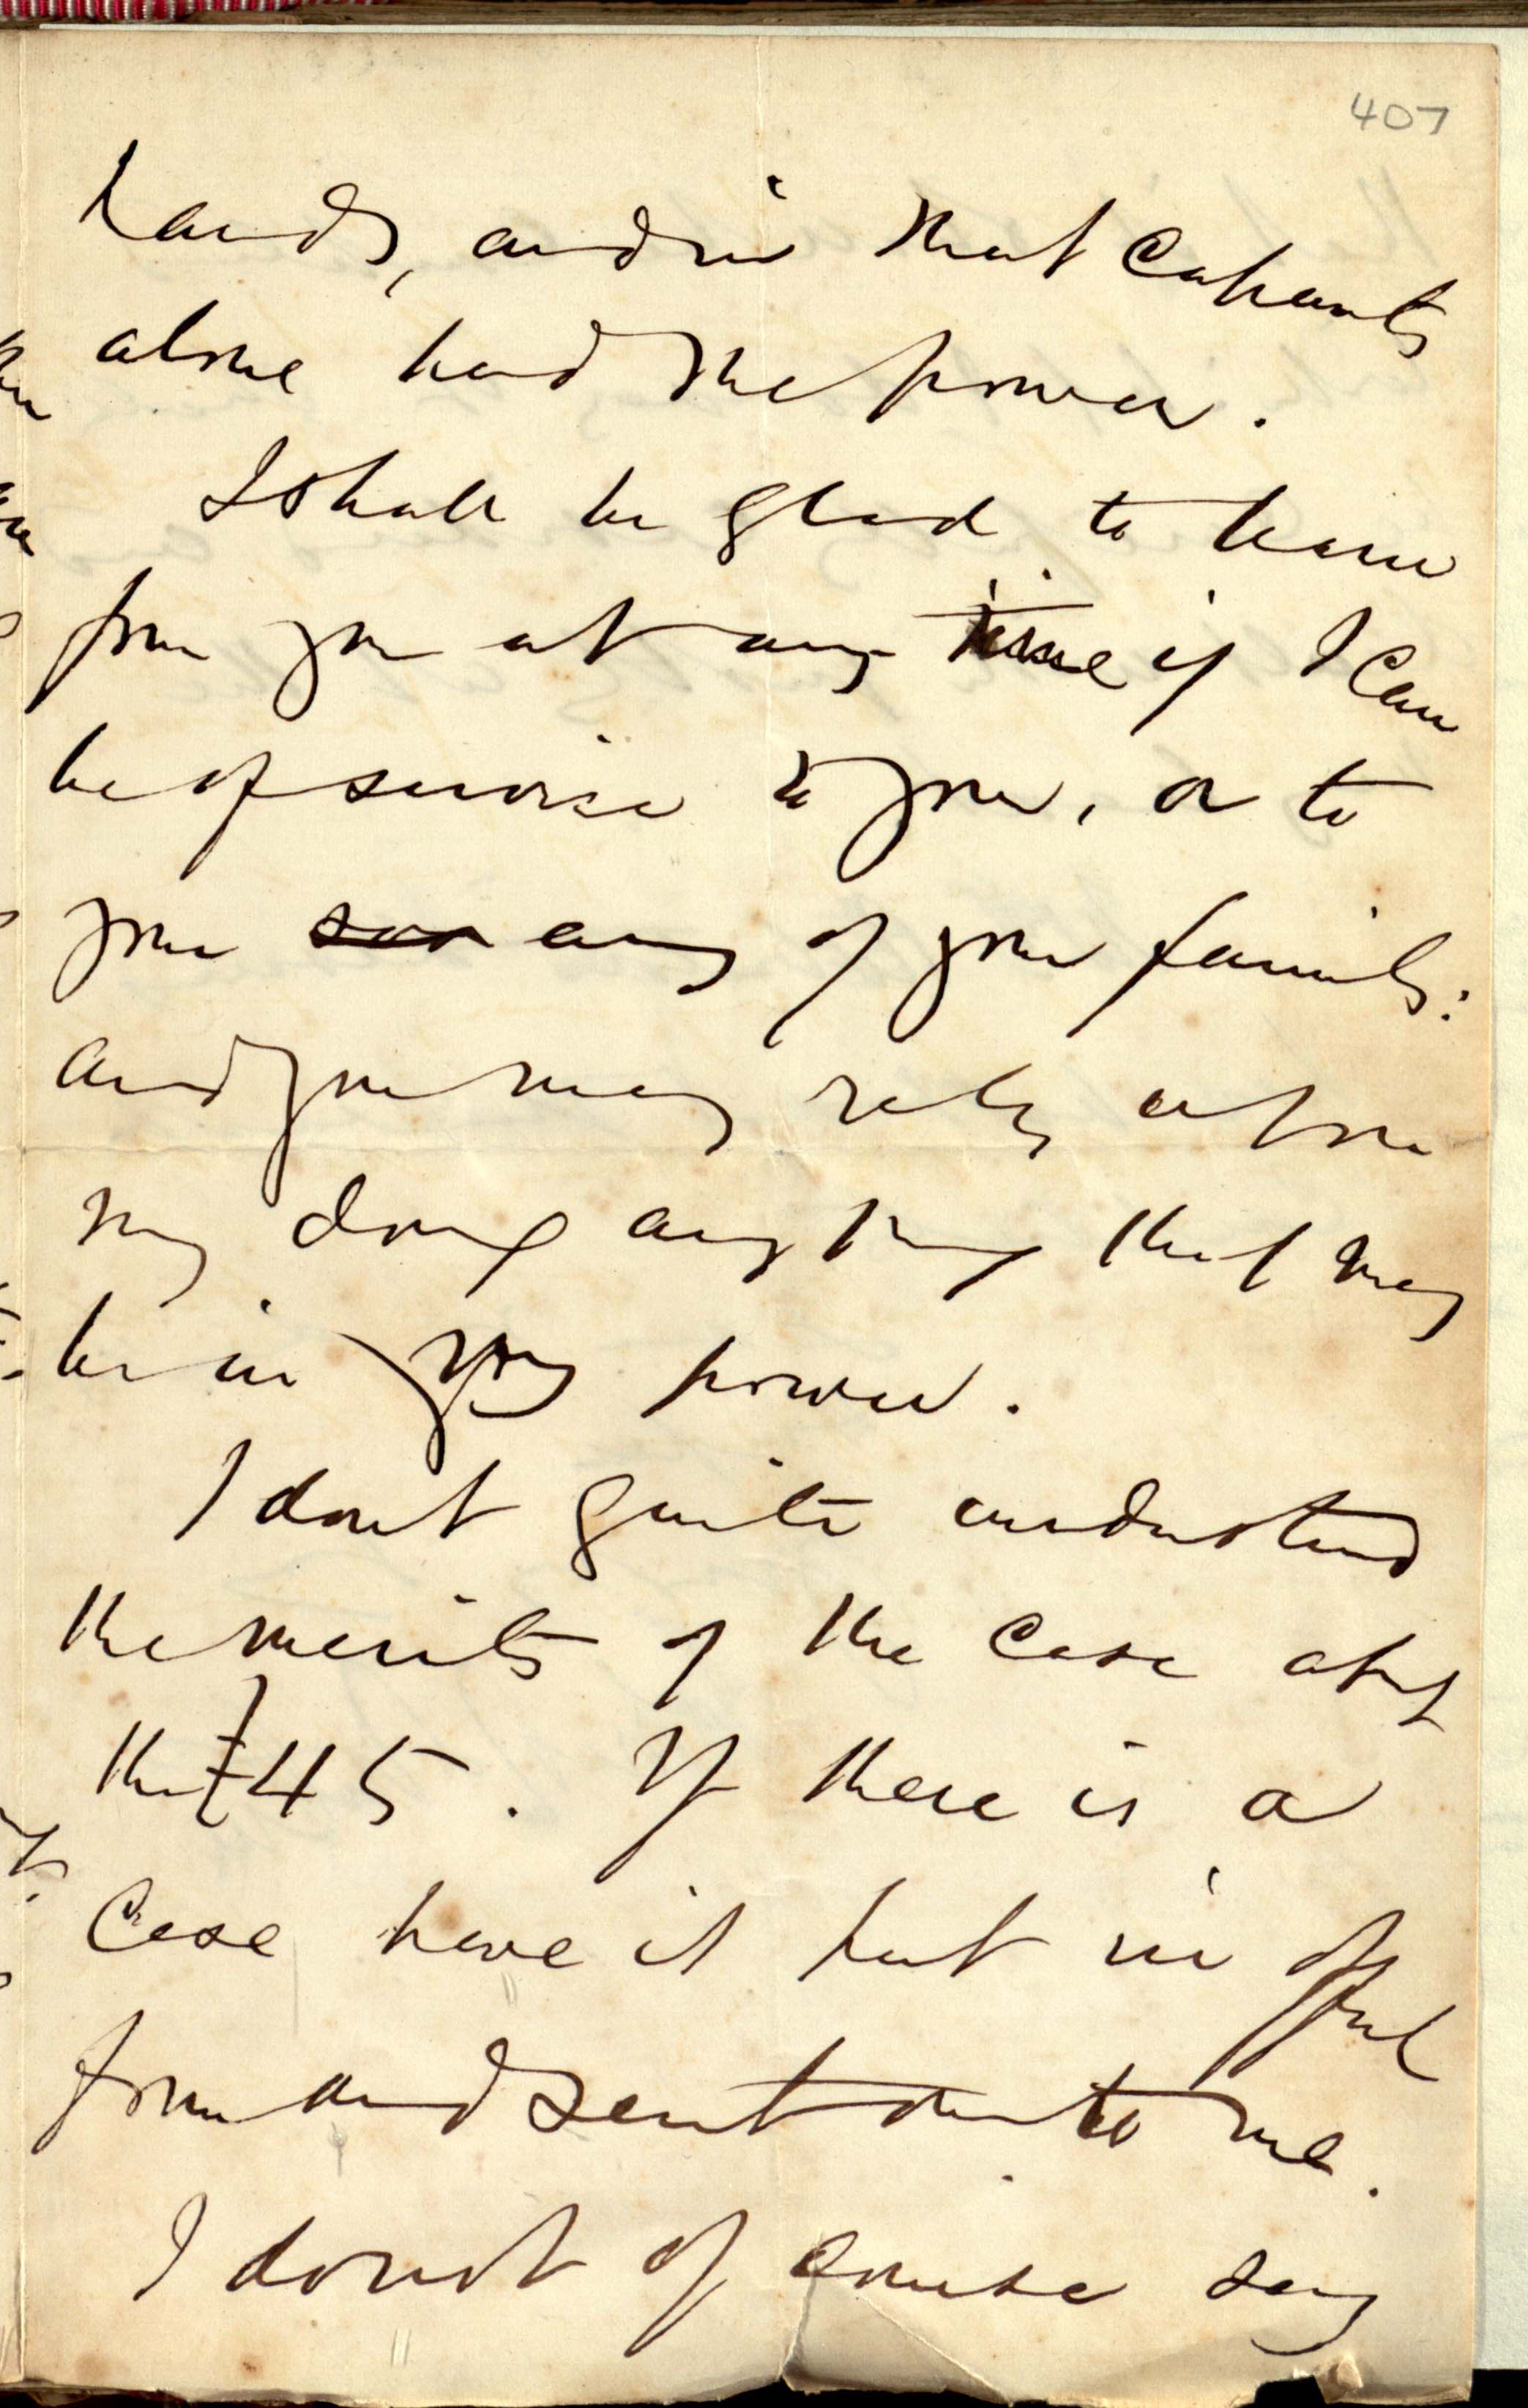 407
hands, and in that Capacity
alone had the power.
I shall be glad to hear
from you at any time if I can
be of service to you, or to
your son any of your family:
and you may rely upon
my doing anything that may
be in my power.
I don't quite understand
the merits of the case abt
the £45. If there is a
Case have it put in offical
form and sent on to me.
I do not of course say